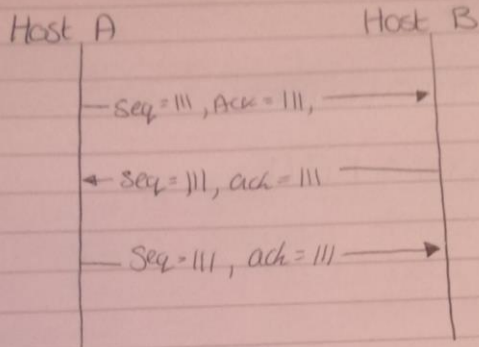 Host A Host B
Seq = 111, Ack = 111,
Seq = 111, ach = 111
Seq = 111, ach = 111